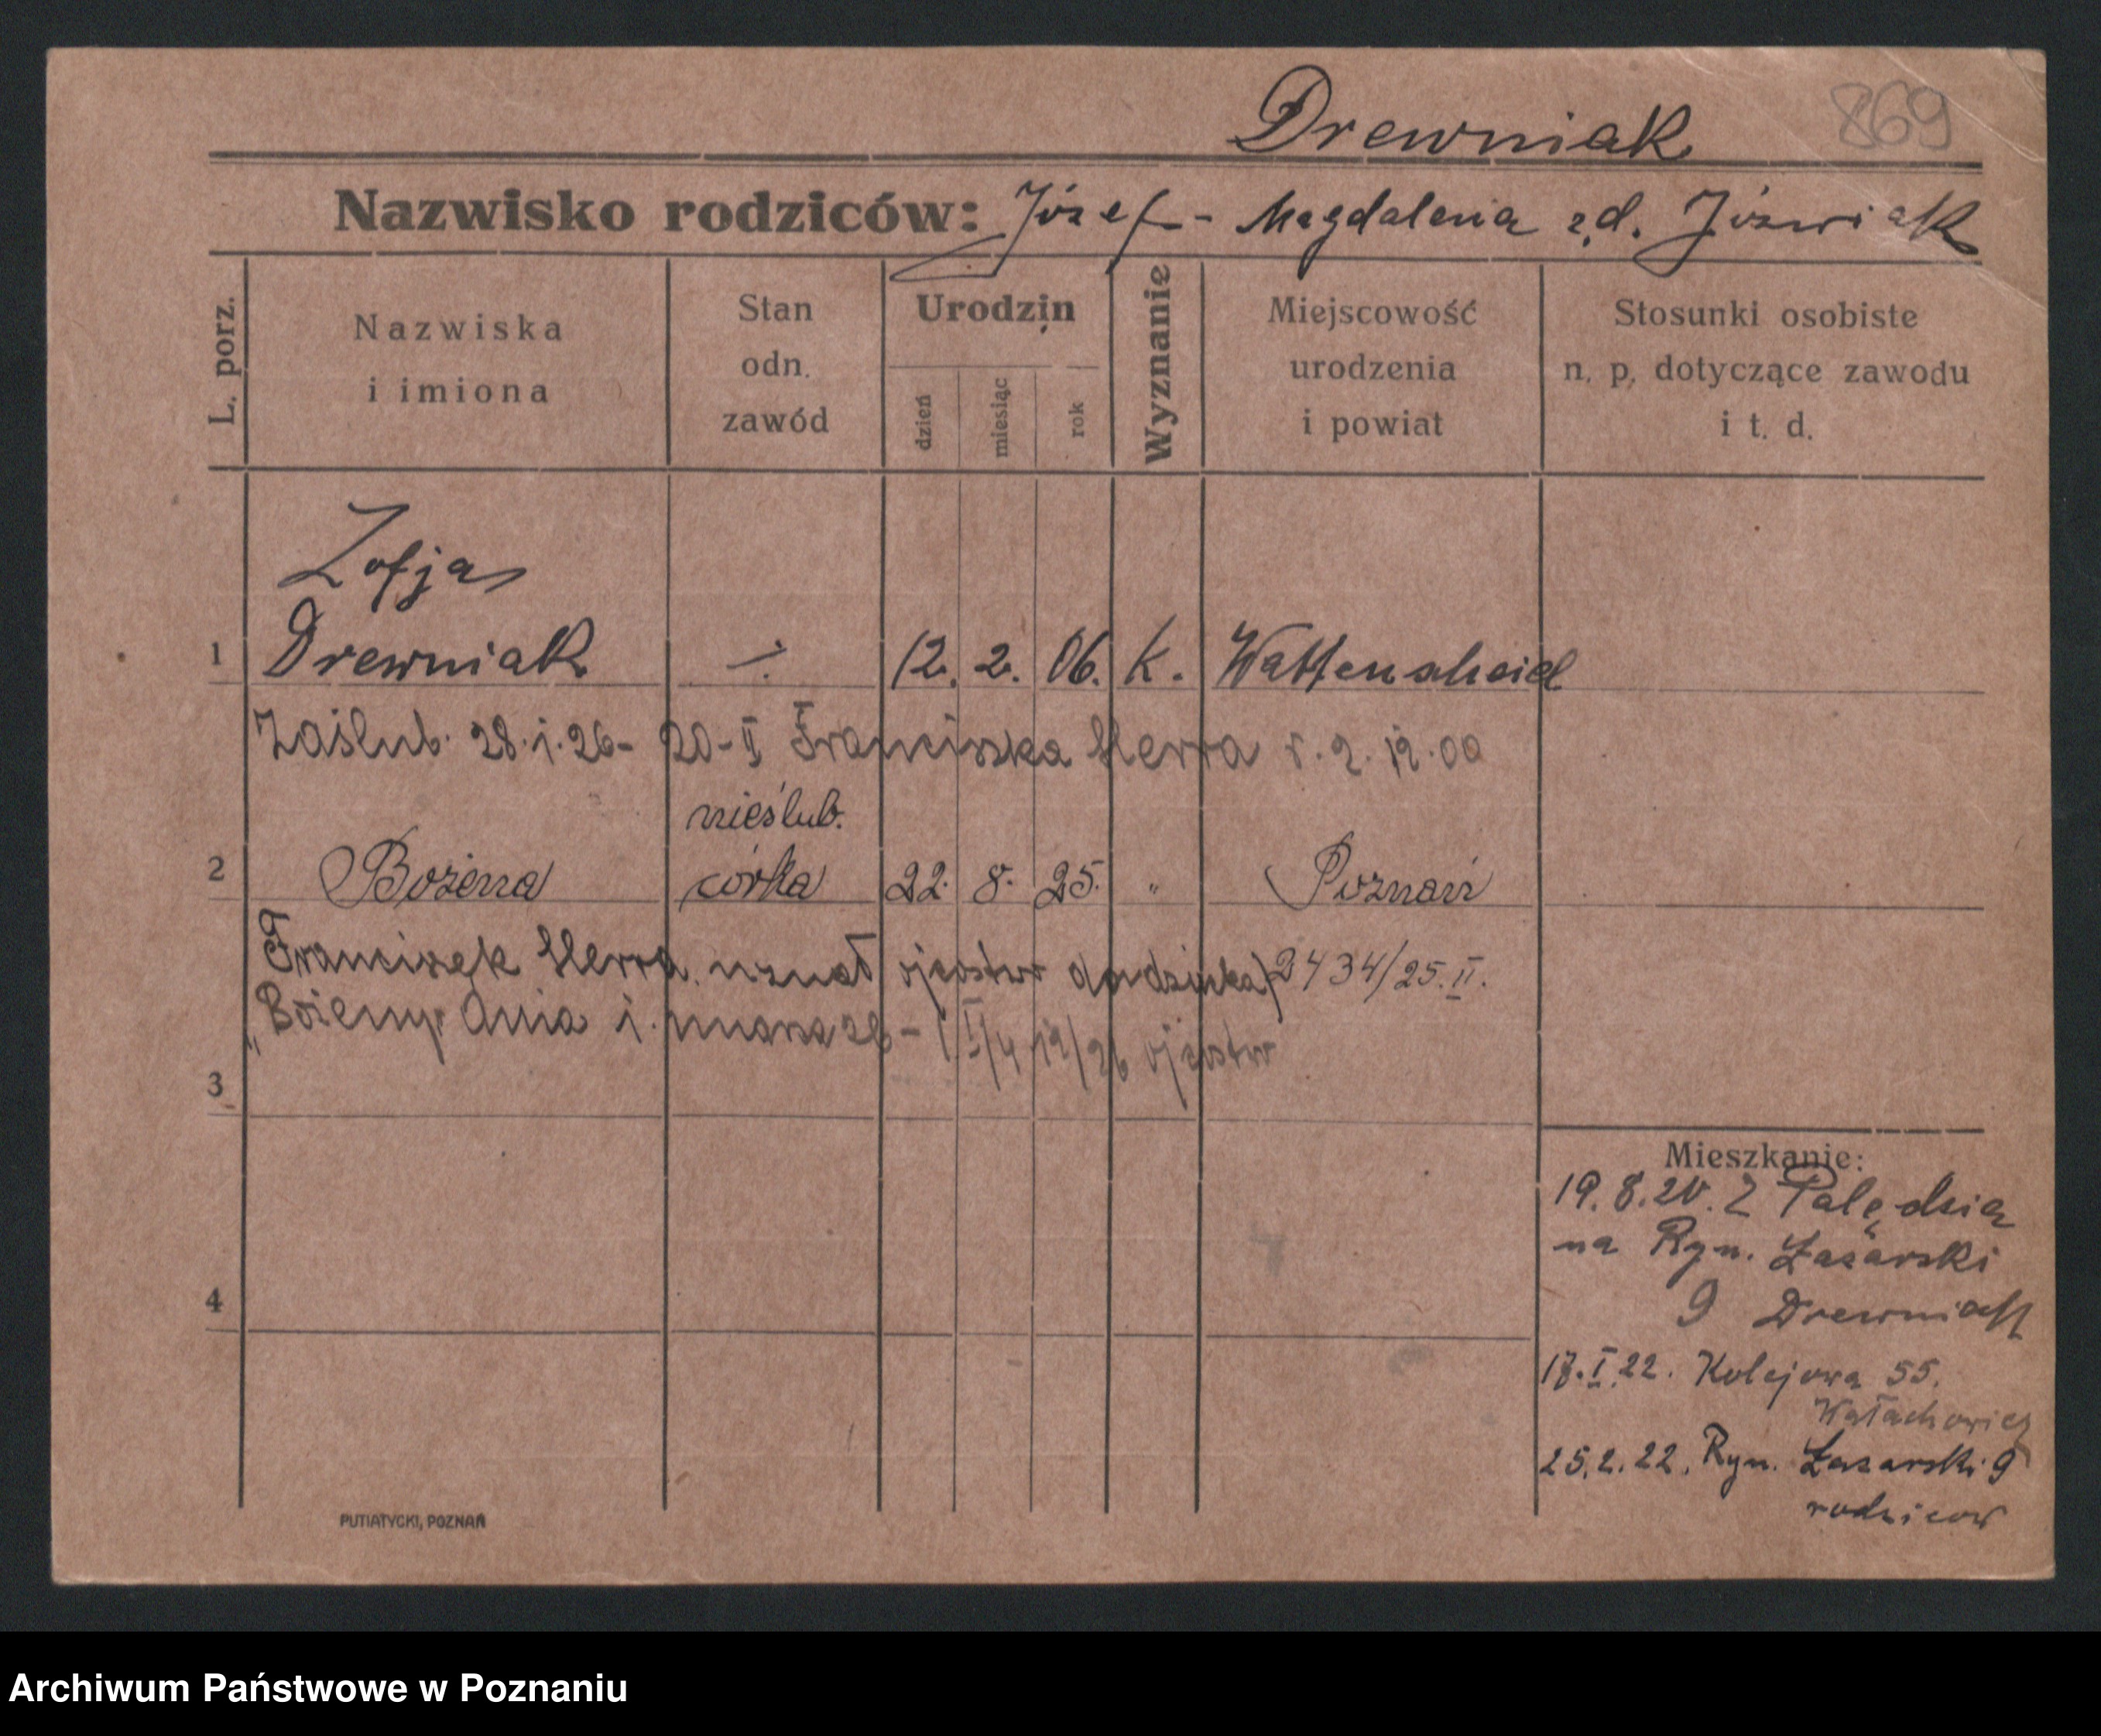 Drewniak
869
Nazwisko rodziców: Józef - Magdalena z d. Józwiak
L. porz.
Nazwiska i imiona
Stan odn. zawód
Urodzin
dzień
miesiąc
rok
Wyznanie
Miejscowość urodzenia i powiat
Stosunki osobiste n. p. dotyczące zawodu i t. d.
Zofja
1 Drewniak -/. 12. 2. 06. K. Wattenscheid
Zaślub. 28.1.26 - 20-II Franciszka Herra r. 2.12.00
nieślub.
2 Bożena córka 22. 8. 25. " Poznań
Franciszek Herra uznał ojcostwo do dziecka 2434/25.II.
"Bożeny" Dnia 1. marca 26 - I/4 12/26 ojcostwo
3
4
Mieszkanie:
19.8.20. Z Palędzia
na Ryn. Łazarski
9 Drewniak
17.I.22. Kolejowa 55.
Wałachowicz
25.2.22. Ryn. Łazarski 9
rodzicow
PUTIATYCKI, POZNAŃ
Archiwum Państwowe w Poznaniu